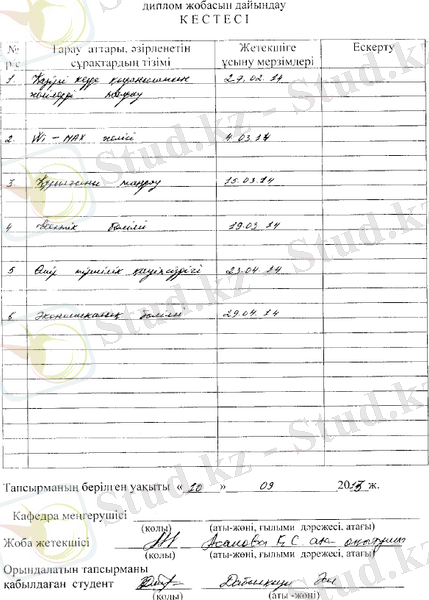 диплом жобасын дайындау
КЕСТЕСІ
№ р/с Тарау аттары, әзірленетін сұрақтардың тізімі Жетекшіге ұсыну мерзімдері Ескерту
1 Қазігі кезде 27.02.14
2. Wi-MAX желісі 4.03.14
3 таңдау 15.03.14
4 бөлімі 19.03.14
5 Өмір тіршілік қауіпсіздігі 23.04.14
6 Экономикалық бөлімі 29.04.14
Тапсырманың берілген уақыты « 10 » 09 2013 ж.
Кафедра меңгерушісі
(қолы) (аты-жөні, ғылыми дәрежесі, атағы)
Жоба жетекшісі
(қолы) (аты-жөні, ғылыми дәрежесі, атағы)
Орындалатын тапсырманы
қабылдаған студент
(қолы) (аты -жөні)
Stud.kz - Stud.kz